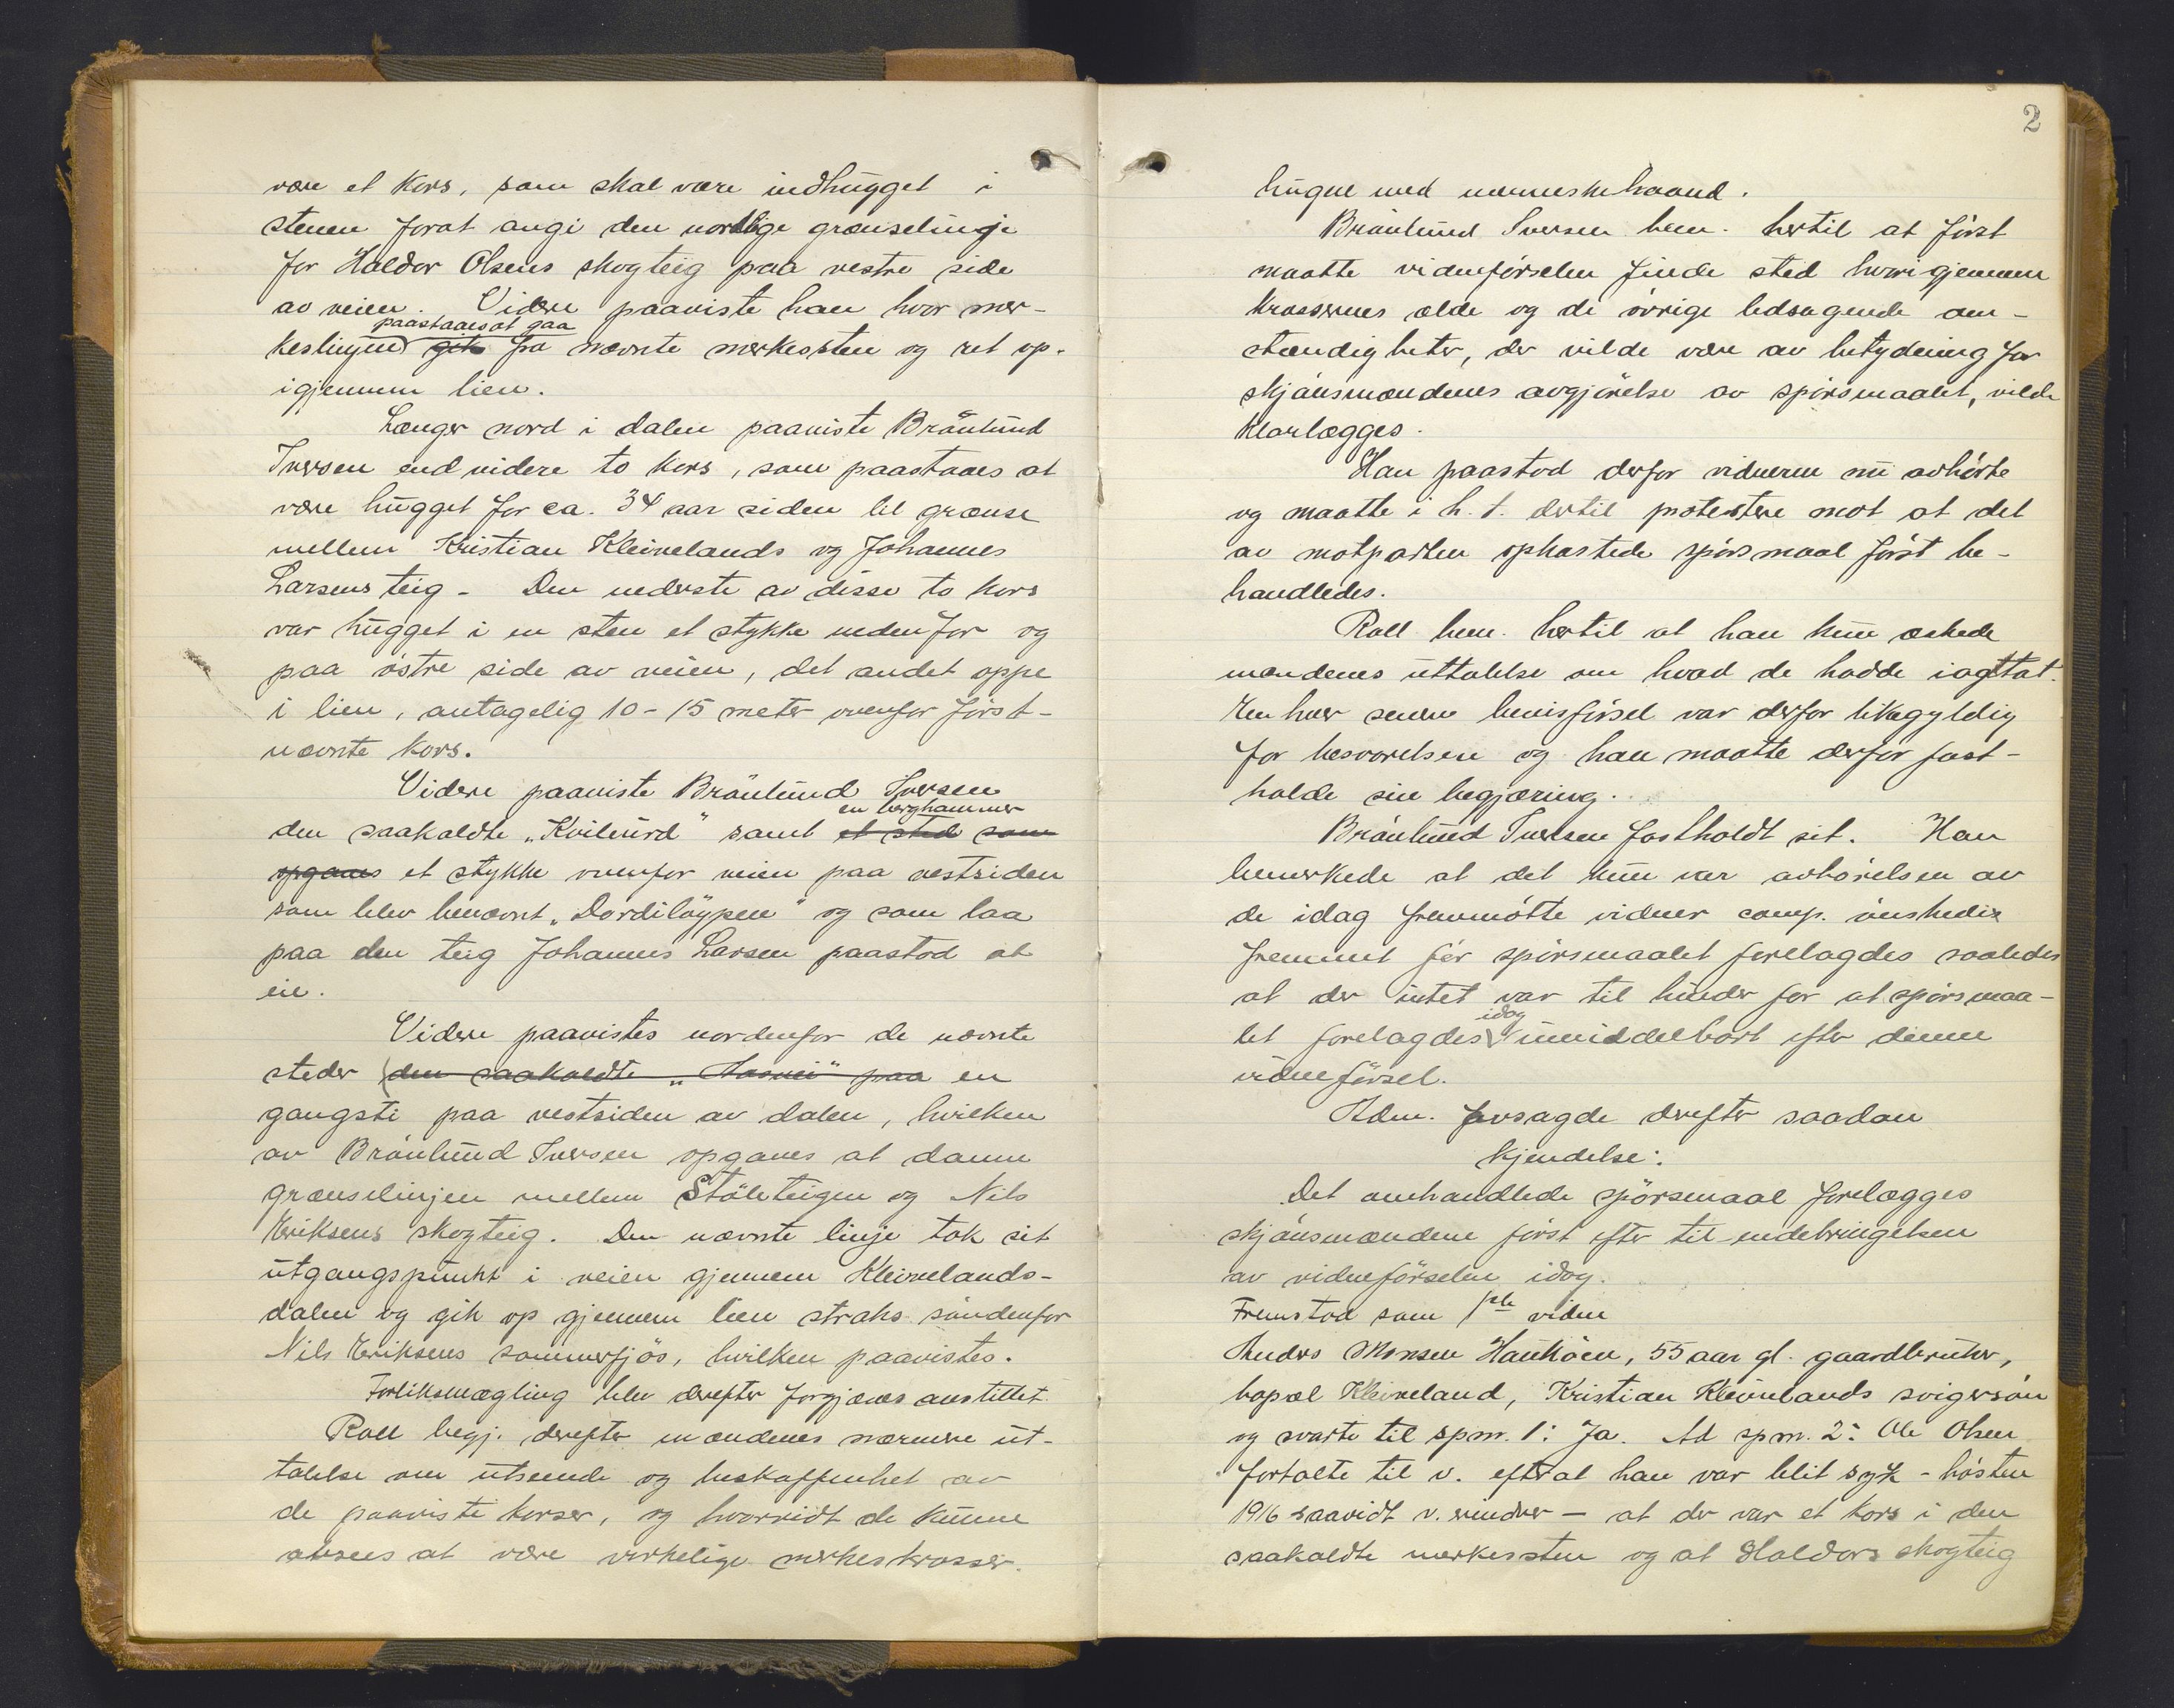 være et kors, som skal være indhugget i
stenen forat angi den nordlige grænselinje
for Haldor Olsens skogteig paa vestre side
av veien. Videre paaviste han hvor mer-
paastaaes at gaa
keslinjen gik fra nævnte merkessten og ret op-
igjennem lien.
Længer nord i dalen paaviste Brönlund
Iversen end videre to kors, som paastaaes at
være hugget for ca. 34 aar siden til grænse
mellem Kristian Kleivelands og Johannes
Larsens teig - Den nederste av disse to kors
var hugget i en sten et stykke nedenfor og
paa östre side av veien, det andet oppe
i lien, antagelig 10-15 meter ovenfor först-
nævnte kors.
Videre paaviste Brönlund Iversen
en berghammer
den saakaldte "Kvilurd" samt et sted som
opgaves et stykke ovenfor veien paa vestsiden
som blev benævnt "Dordilöypen" og som laa
paa den teig Johannes Larsen paastod at
eie.
Videre paavistes nordenfor de nævnte
steder den saakaldte paa en
gangsti paa vestsiden av dalen, hvilken
av Brönlund Iversen opgaves at danne
grænselinjen mellem Stöleteigen og Nils
Eriksens skogteig. Den nævnte linje tok sit
utgangspunkt i veien gjennem Kleivelands-
dalen og gik op gjennem lien straks söndenfor
Nils Eriksens sommerfjös, hvilken paavistes.
Forliksmægling blev derefter forgjæves anstillet.
Roll begj. derefter mændenes nærmere ut-
talelse om utseende og beskaffenhet av
de paaviste korser, og hvorvidt de kunne
ansees at være virkelige merkeskrosser.
2
hugne med menneskehaand.
Brönlund Iversen bem. hertil at först
maatte vidneförselen finde sted hvorigjennem
krossernes ælde og de övrige ledsagende om-
stændigheter, der vilde være av betydning for
skjönsmændenes avgjörelse av spörsmaalet, vilde
klarlægges.
Han paastod derfor vidnerne nu avhörte
og maatte i h. t. dertil protestere mot at det
av motparten opkastede spörsmaal först be-
handledes.
Roll bem. hertil at han kun æskede
mændenes uttalelse om hvad de hadde iagttat.
Enhver senere bevisförsel var derfor likegyldig
for besvarelsen og han maatte derfor fast-
holde sin begjæring.
Brönlund Iversen fastholdt sit. Han
bemerkede at det kun var avhörelsen av
de idag fremmötte vidner comp. önskedes
fremmet för spörsmaalet forelagdes saaledes
at der intet var til hinder for at spörsmaa-
idag
let forelagdes umiddelbart efter denne
vidneförsel.
Adm. avsagde derefter saadan
kjendelse:
Det omhandlede spörsmaal forelægges
skjönsmændene först efter til endebringelsen
av vidneförselen idag.
Fremstod som 1ste vidne
Anders Monsen Hauköen, 55 aar gl. gaardbruker,
bopæl Kleiveland, Kristian Kleivelands svigersön
og svarte til spm. 1: Ja. Ad spm. 2: Ole Olsen
fortalte til v. efterat han var blit syk - hösten
1916 saavidt v. erindrer - at der var et kors i den
saakaldte merkessten og at Haldors skogteig